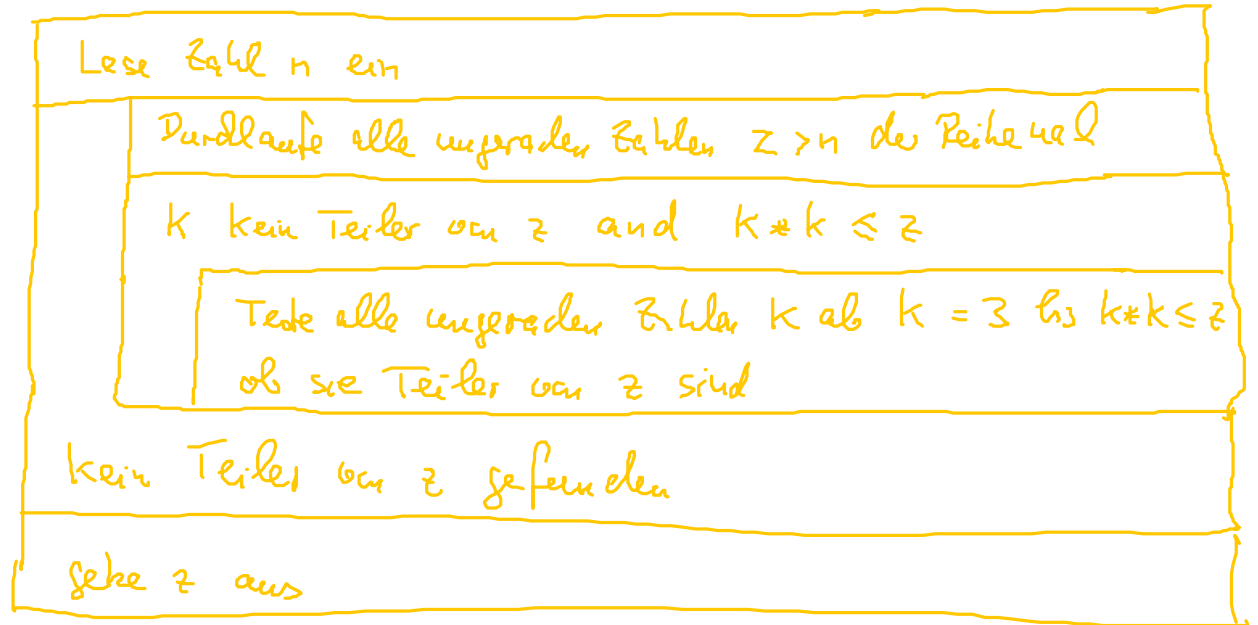 Lese Zahl n ein
Durchlaufe alle ungeraden Zahlen z > n der Reihe nach
K kein Teiler von z and k * k ≤ z
Teste alle ungeraden Zahlen K ab K = 3 bis k*k ≤ z
ob sie Teiler von z sind
kein Teiler von z gefunden
gebe z aus